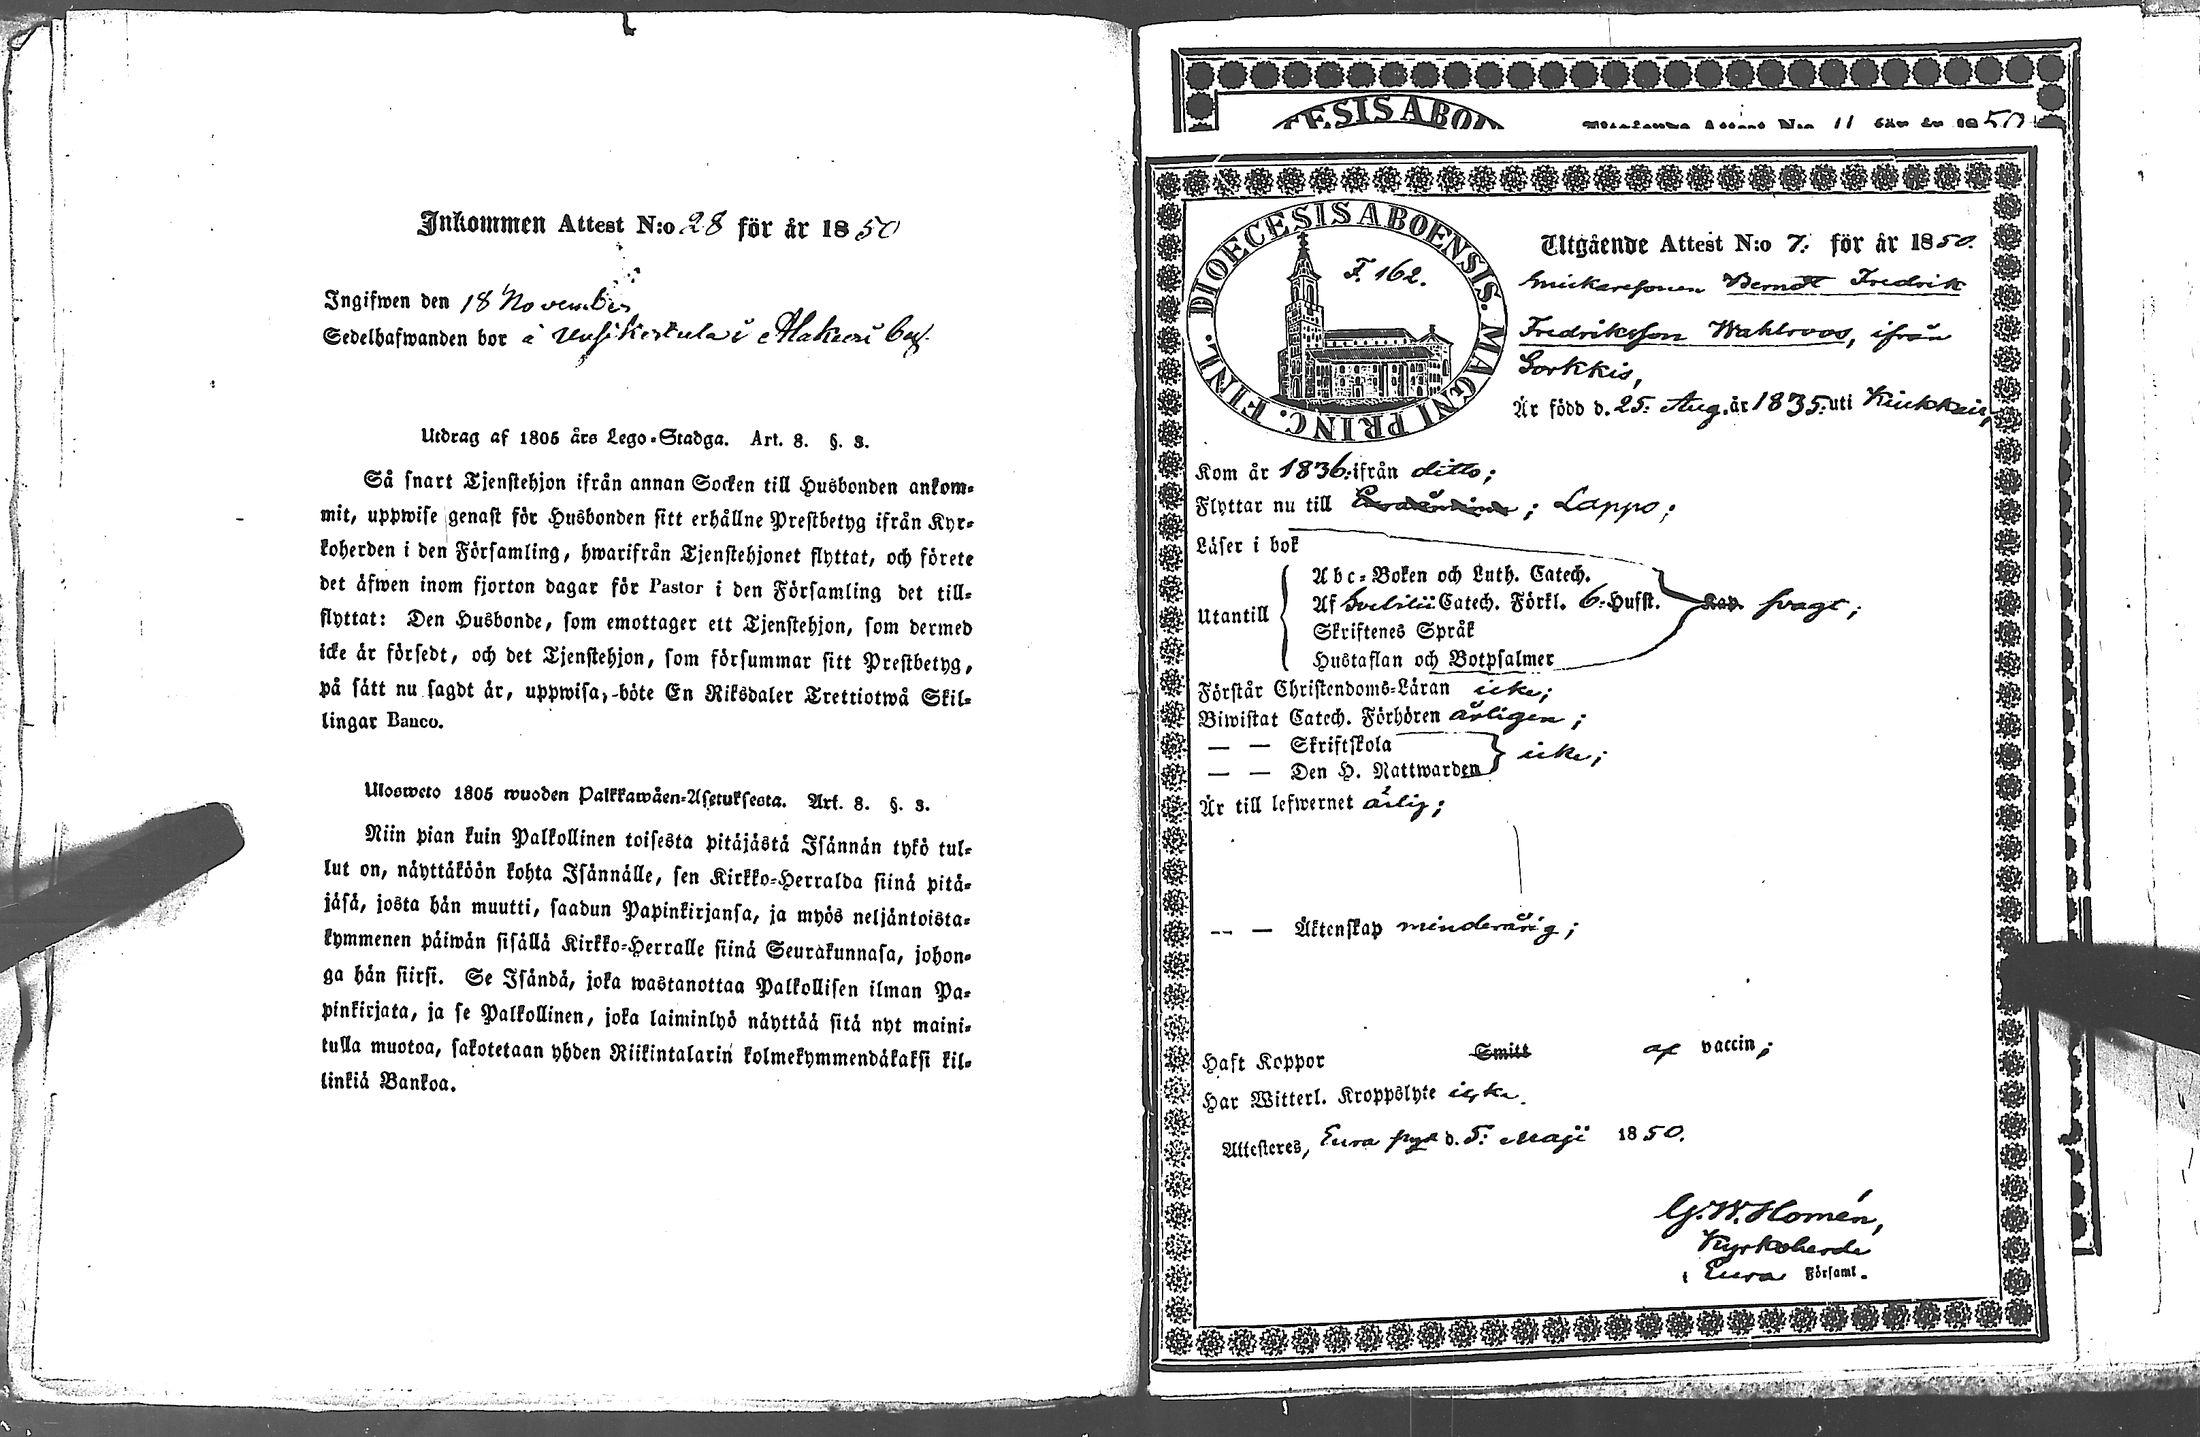 Inkommen Attest N:o 28 för år 1850
Ingifwen den 18 November
Sedelhafwanden bor i
Utdrag af 1805 års Lego-Stadga. Art. 8. §. 3.
Så snart Tjenstehjon ifrån annan Socken till Husbonden ankom-
mit, uppwise genast för Husbonden sitt erhållne Prestbetyg ifrån Kyr-
koherden i den Församling, hwarifrån Tjenstehjonet flyttat, och förete
det äfwen inom fjorton dagar för Pastor i den Församling det till-
flyttat: Den Husbonde, som emottager ett Tjenstehjon, som dermed
icke är försedt, och det Tjenstehjon, som försummar sitt Prestbetyg,
på sätt nu sagdt är, uppwisa, böte En Riksdaler Trettiotwå Skil-
lingar Banco.
Ulosweto 1805 wuoden Palkkawäen-Asetuksesta. Art. 8. §. 3.
Niin pian kuin Palkollinen toisesta pitäjästä Isännän tykö tul-
lut on, näyttäköön kohta Isännälle, sen Kirkko-Herralda siinä pitä-
jäsä, josta hän muutti, saadun Papinkirjansa, ja myös neljäntoista-
kymmenen päiwän sisällä Kirkko-Herralle siinä Seurakunnasa, johon-
ga hän siirsi. Se Isändä, joka wastanottaa Palkollisen ilman Pa-
pinkirjata, ja se Palkollinen, joka laiminlyö näyttää sitä nyt maini-
tulla muotoa, sakotetaan yhden Riikintalarin kolmekymmendäkaksi kil-
linkiä Bankoa.
ESIS ABO
Utgående Attest N:o 11 för år 1850
DIOECESIS ABOENSIS. MAGNI PRINC. FINL.
F. 162.
Utgående Attest N:o 7. för år 1850.
Enickaresonen Berndt Fredrik
Fredriksson Wahlroos, ifrån
Sorkkis,
Är född d. 25. Aug. år 1835. uti Kiukkais,
Kom år 1836. ifrån ditto;
Flyttar nu till ; Lappo;
Läser i bok
Utantill
Abc-Boken och Luth. Catech.
Af Svebilii Catech. Förkl. 6. Hufst.
Skriftenes Språk
Hustaflan och Botpsalmer
svagt;
Förstår Christendoms-Läran icke;
Biwistat Catech. Förhören årligen;
— — Skriftskola
— — Den H. Nattwarden
icke;
Är till lefwernet ärlig;
— — Äktenskap minderårig;
Haft Koppor Smitt af vaccin;
Har Witterl. Kroppslyte icke.
Attesteras, Eura d. 5. Maji 1850.
G. W. Homén,
Kyrkoherde
i Eura Församl.